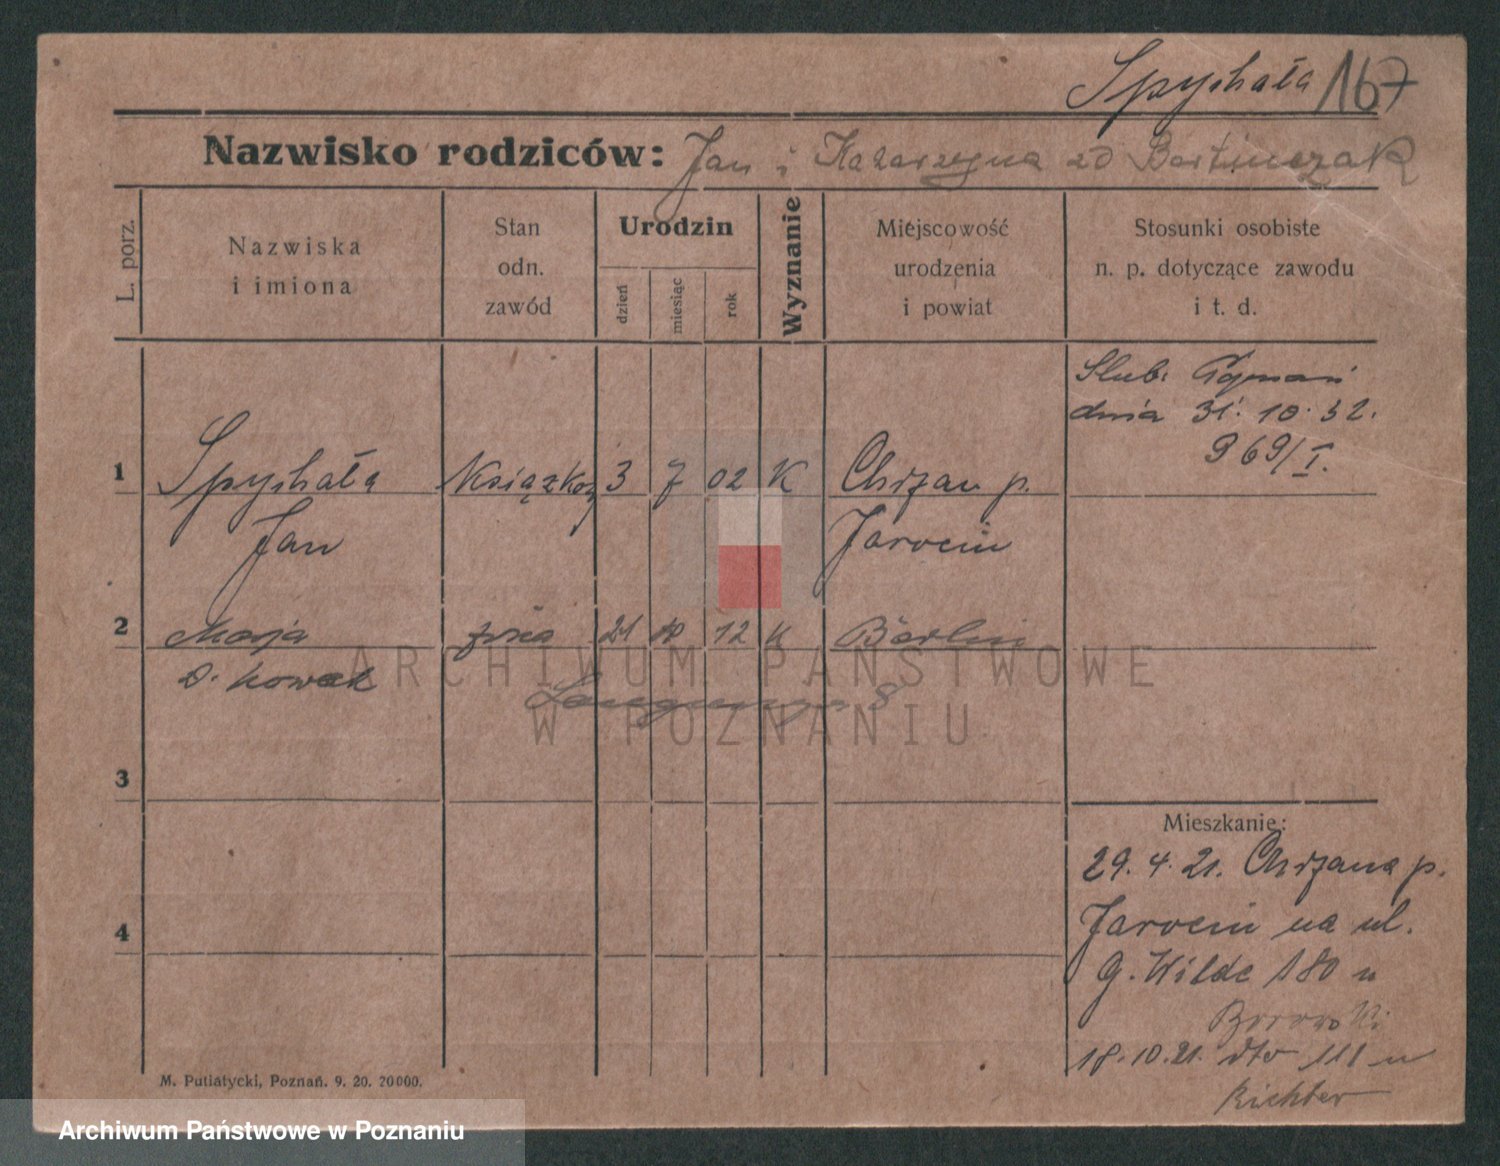 Spychała 167
Nazwisko rodziców: Jan i Katarzyna zd Bartuczak
L. porz.
Nazwiska
i imiona
Stan
odn.
zawód
Urodzin
dzień
miesiąc
rok
Wyznanie
Miejscowość
urodzenia
i powiat
Stosunki osobiste
n. p. dotyczące zawodu
i t. d.
Slub: Poznań
dnia 31. 10. 32.
969/I.
1 Spychała Książkow 3 7 02 K Chrzan p.
Jan Jarocin
2 Marja żona 21 10 12 K Berlin
D. Nowak
ARCHIWUM PAŃSTWOWE
W POZNANIU
3
Mieszkanie:
29. 4. 21. Chrzana p.
Jarocin na ul.
4
G. Wilde 180 u
Borowski
18. 10. 21. dto 111 u
Richter
M. Putiatycki, Poznań. 9. 20. 20000.
Archiwum Państwowe w Poznaniu